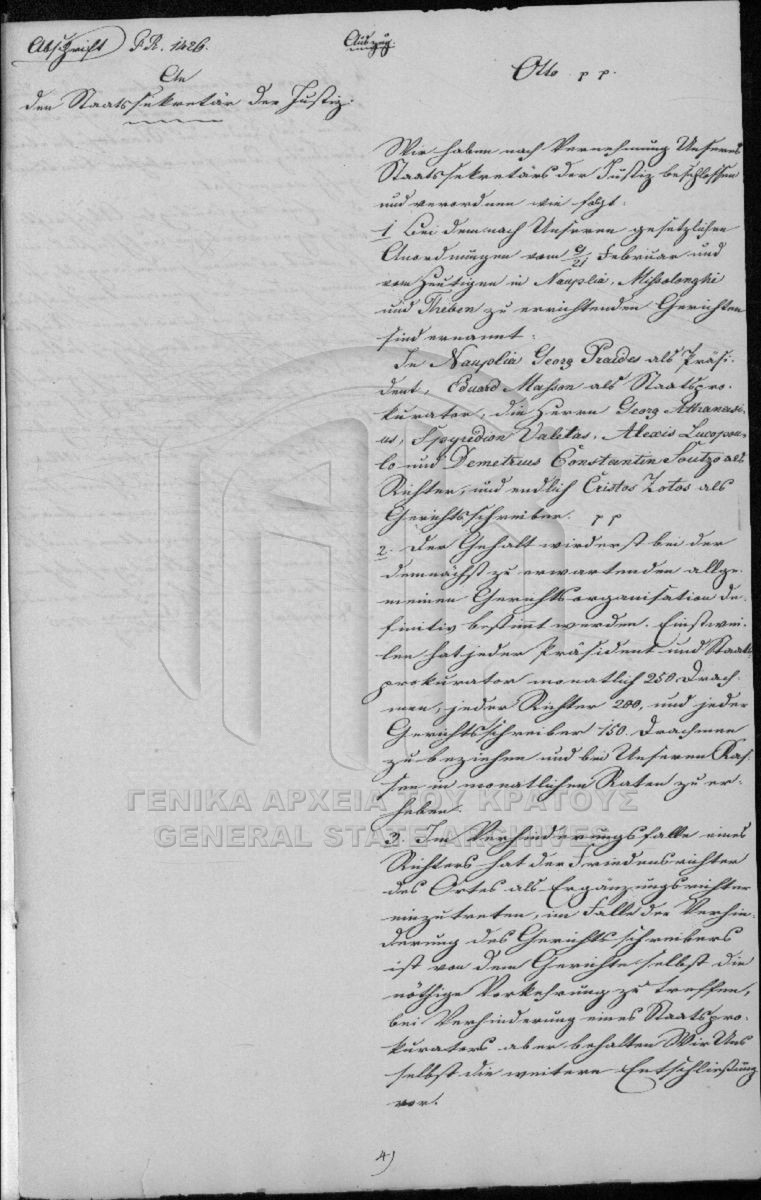 Abschrift P.R. 1426.
Auszug.
An
den Staatssekretär der Justiz.
Otto p p.
Wir haben nach Vernehmung Unseres
Staatssekretärs der Justiz beschlossen
und verordnen wie folgt:
1. Bei dem nach Unseren gesetzlichen
Anordnungen vom 9/21 Februar und
vom Heutigen in Nauplia, Missolonghi
und Theben zu errichtenden Gerichten
sind ernannt:
In Nauplia Georg Praides als Präsi-
dent, Eduard Masson als Staatspro-
kurator, die Herrn Georg Athanasi-
us, Spyridion Valetas, Alexis Lucopou-
lo und Demetrius Constantin Soutzo als
Richter, und endlich Cristos Zotos als
Gerichtsschreiber. p p
2. Der Gehalt wird erst bei der
demnächst zu erwartenden allge-
meinen Gerichtsorganisation de-
finitiv bestimmt werden. Einstwei-
len hat jeder Präsident und Staats-
prokurator monatlich 250 Drach-
men, jeder Richter 200, und jeder
Gerichtsschreiber 150. Drachmen
zu beziehen und bei Unseren Kas-
sen in monatlichen Raten zu er-
heben.
3. Im Verhinderungsfalle eines
Richters hat der Friedensrichter
des Ortes als Ergänzungsrichter
einzutreten, im Falle der Verhin-
derung des Gerichtsschreibers
ist von dem Gerichte selbst die
nöthige Vorkehrung zu treffen,
bei Verhinderung eines Staatspro-
kurators aber behalten Wir Uns
selbst die weitere Entschließung
vor.
4)
ΓΕΝΙΚΑ ΑΡΧΕΙΑ ΤΟΥ ΚΡΑΤΟΥΣ
GENERAL STATE ARCHIVES